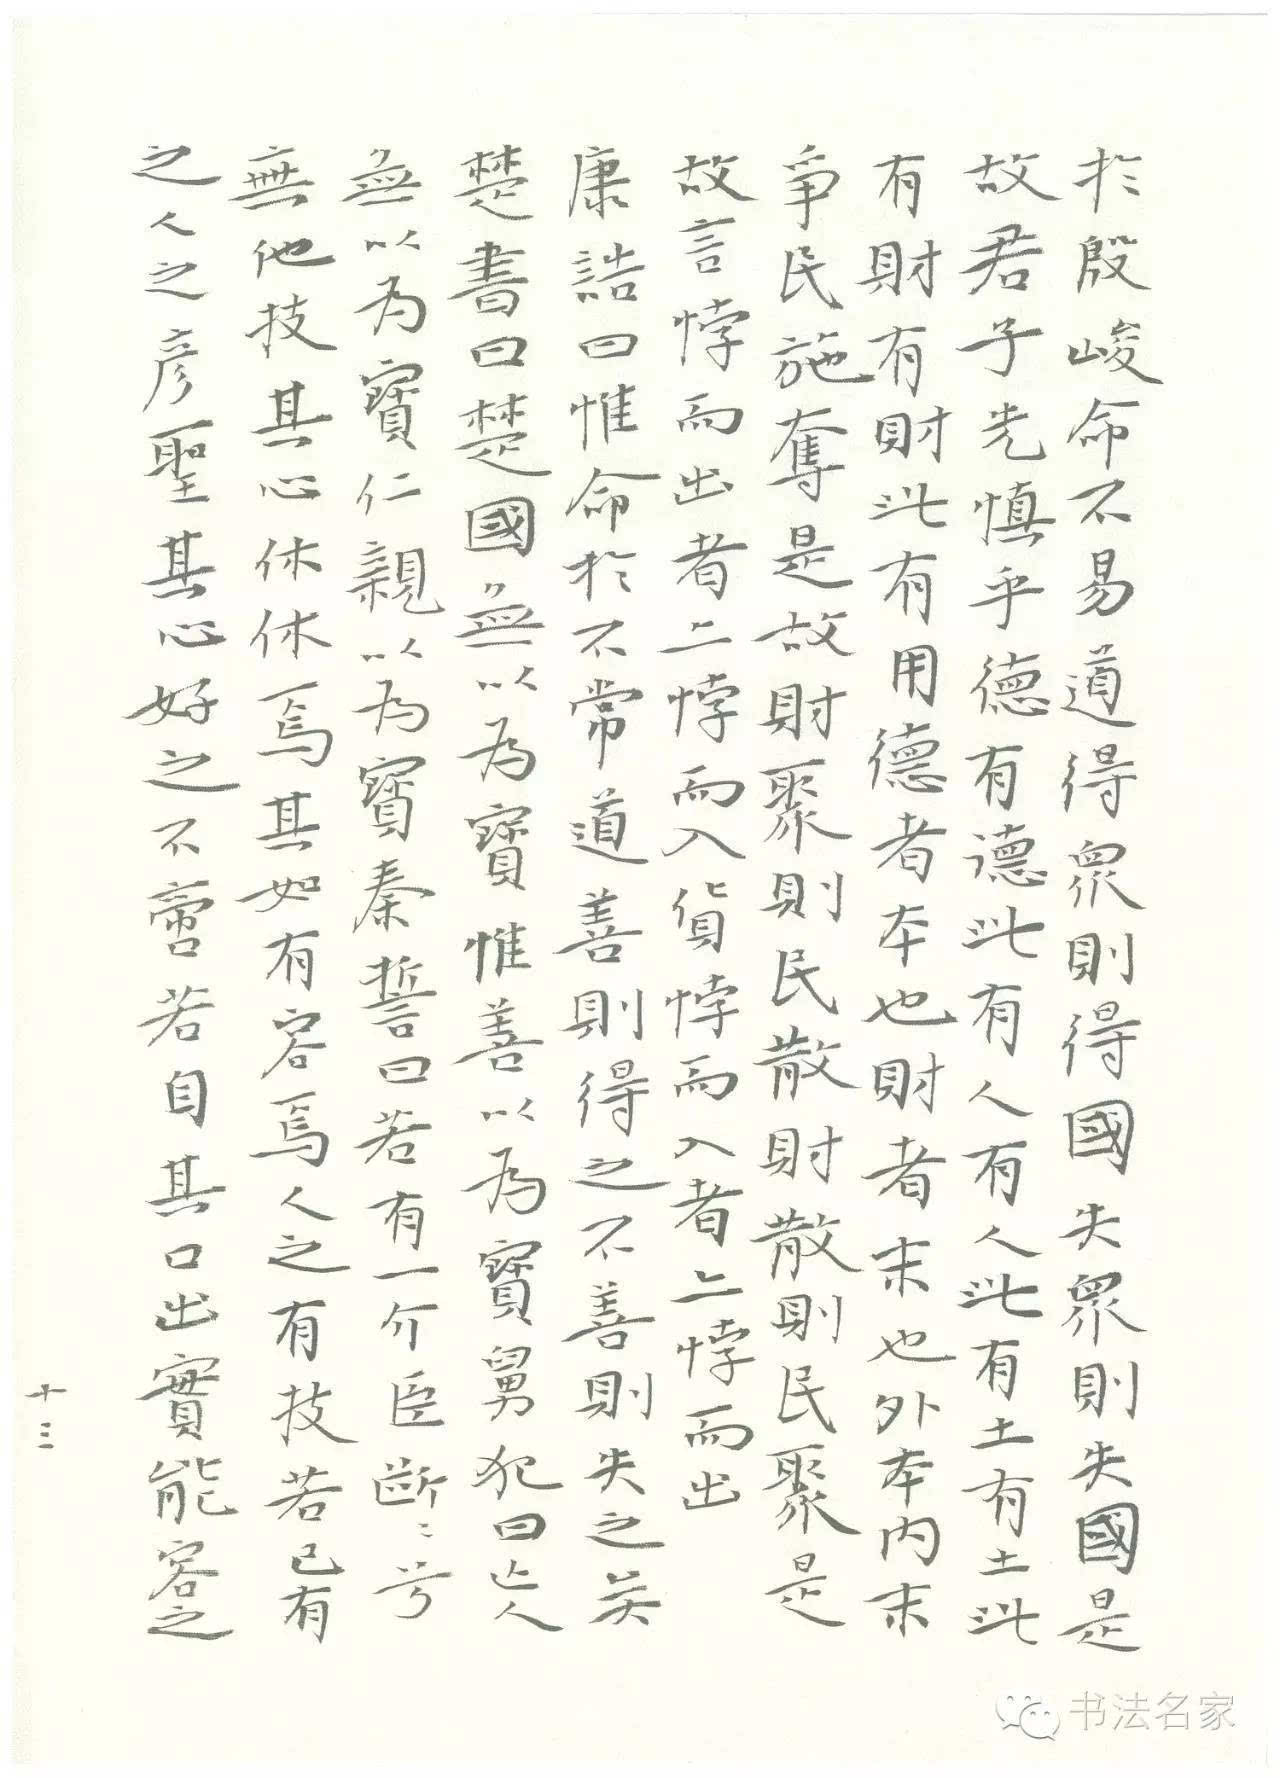 於殷峻命不易道得眾則得國失眾則失國是
故君子先慎乎德有德此有人有人此有土有土此
有財有財此有用德者本也財者末也外本內末
爭民施奪是故財聚則民散財散則民聚是
故言悖而出者亦悖而入貨悖而入者亦悖而出
康誥曰惟命於不常道善則得之不善則失之矣
楚書曰楚國無以為寶惟善以為寶舅犯曰亡人
無以為寶仁親以為寶秦誓曰若有一介臣斷〻兮
無他技其心休休焉其如有容焉人之有技若己有
之人之彥聖其心好之不啻若自其口出實能容之
十三
书法名家